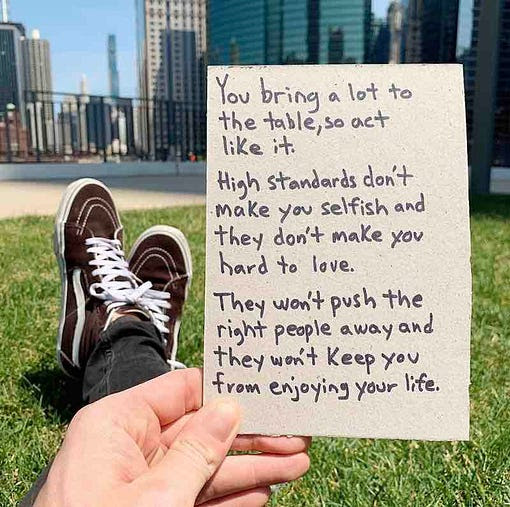 You bring a lot to
the table, so act
like it.
High standards don't
make you selfish and
they don't make you
hard to love.
They won't push the
right people away and
they won't keep you
from enjoying your life.